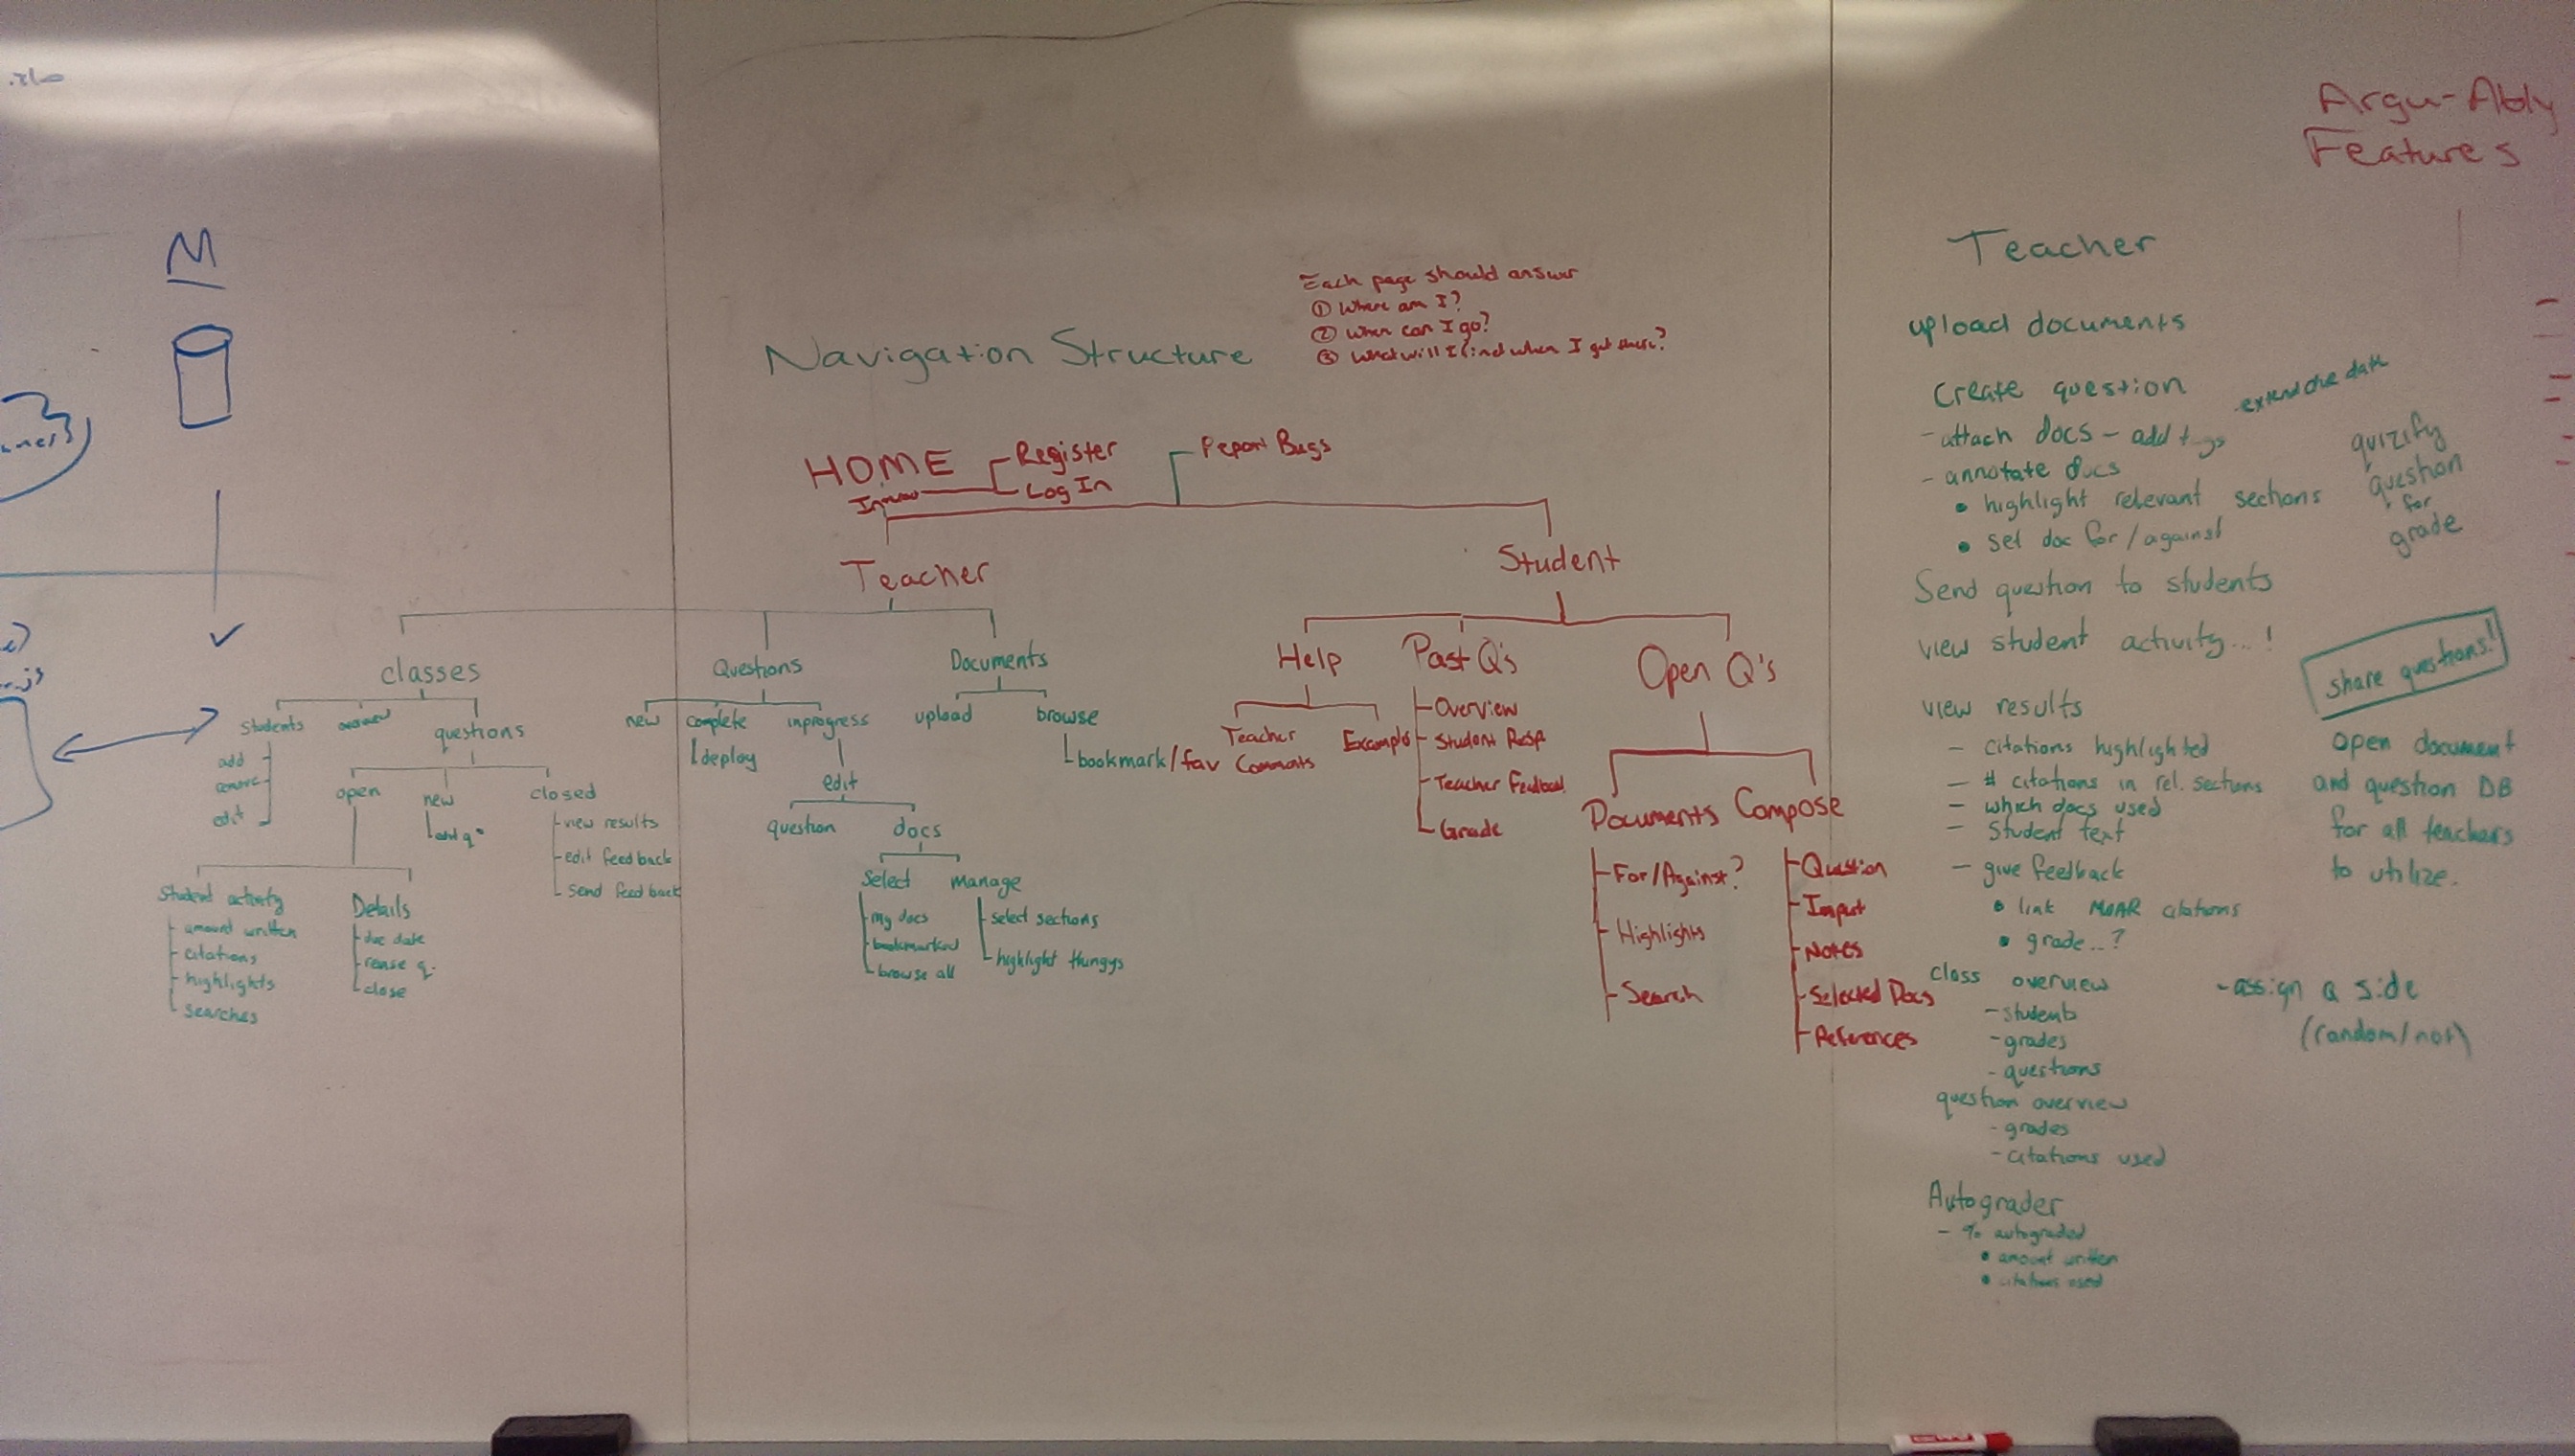 .xls
M
Navigation Structure
Each page should answer
① Where am I?
② When can I go?
③ What will I find when I get there?
HOME
Register
Log In
Report Bugs
Teacher
classes
Students
add
remove
edit
questions
open
Student activity
amount written
citations
highlights
searches
Details
due date
close
new
add q.
closed
view results
edit feedback
send feedback
Questions
new
complete
deploy
inprogress
edit
question
docs
select
my docs
bookmarked
browse all
manage
select sections
highlight thingys
Documents
upload
browse
bookmark/fav
Student
Help
Teacher
Comments
Example
Past Q's
Overview
Student Resp
Teacher Feedback
Grade
Open Q's
Documents
For/Against?
Highlights
Search
Compose
Question
Input
Notes
Selected Docs
References
Argu-Ably
Features
Teacher
upload documents
Create question
- attach docs - add tags
- extend due date
- annotate docs
• highlight relevant sections
• set doc for/against
quizify
question
for
grade
Send question to students
view student activity...!
share questions!
view results
- citations highlighted
- # citations in rel. sections
- which docs used
- Student text
- give feedback
• link MOAR citations
• grade...?
open document
and question DB
for all teachers
to utilize.
class overview
- students
- grades
- questions
- assign a side
(random/not)
question overview
- grades
- citations used
Autograder
- % autograded
• amount written
• citations used